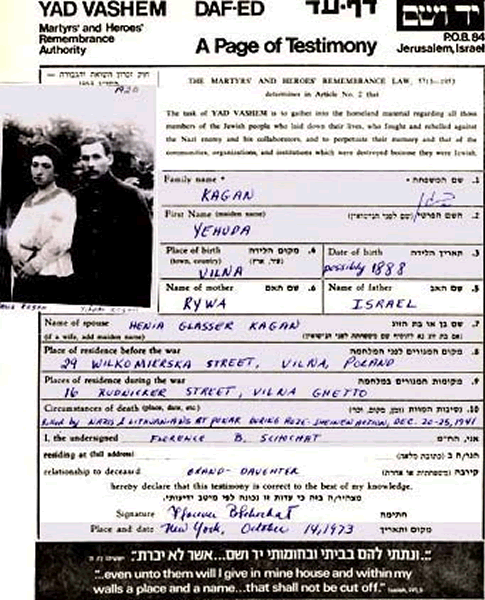 YAD VASHEM DAF-ED דף-עד יד ושם
Martyrs' and Heroes'
Remembrance
Authority
A Page of Testimony
P.O.B. 84
Jerusalem, Israel
חוק זכרון השואה והגבורה —
1920
THE MARTYRS' AND HEROES' REMEMBRANCE LAW, 5713—1953
determines in Article No. 2 that
The task of YAD VASHEM is to gather into the homeland material regarding all those
members of the Jewish people who laid down their lives, who fought and rebelled against
the Nazi enemy and his collaborators, and to perpetuate their memory and that of the
communities, organizations, and institutions which were destroyed because they were Jewish.
Family name * 1. שם המשפחה *
KAGAN
First Name (maiden name) 2. השם הפרטי (שם לפני הנישואין)
YEHUDA
Place of birth 4. מקום הלידה
(town, country) (עיר, ארץ)
VILNA
Date of birth 3. תאריך הלידה
possibly 1888
Name of mother 6. שם האם
RYWA
Name of father 5. שם האב
ISRAEL
Name of spouse HENIA GLASSER KAGAN 7. שם בן או בת הזוג
(if a wife, add maiden name)
Place of residence before the war 8. מקום המגורים לפני המלחמה
29 WILKOMIERSKA STREET, VILNA, POLAND
Places of residence during the war 9. מקומות המגורים במלחמה
16 RUDNICKER STREET, VILNA GHETTO
Circumstances of death (place, date, etc.) 10. נסיבות המוות (זמן, מקום, וכו')
Killed by NAZIS & LITHUANIANS AT PONAR DURING ACTION, DEC. 20-25, 1941
I, the undersigned FLORENCE B. SCHOCHAT אני, הח"מ
residing at (full address) הגר/ה ב (כתובת מלאה)
relationship to deceased GRAND-DAUGHTER קירבה (משפחתית או אחרת)
hereby declare that this testimony is correct to the best of my knowledge.
מצהיר/ה בזה כי עדות זו נכונה לפי מיטב ידיעתי.
Signature Florence B Schochat חתימה
Place and date New York, October 14, 1973 מקום ותאריך
"...ונתתי להם בביתי ובחומותי יד ושם...אשר לא יכרת".
"...even unto them will I give in mine house and within my
walls a place and a name...that shall not be cut off."